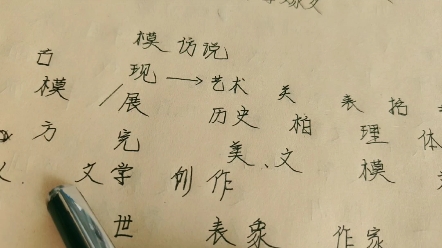 模仿说
古 现 → 艺术 美 表 括
模 展 历史 柏 理 体
方 完 美、文 模
文学 创作
世 表象 作家